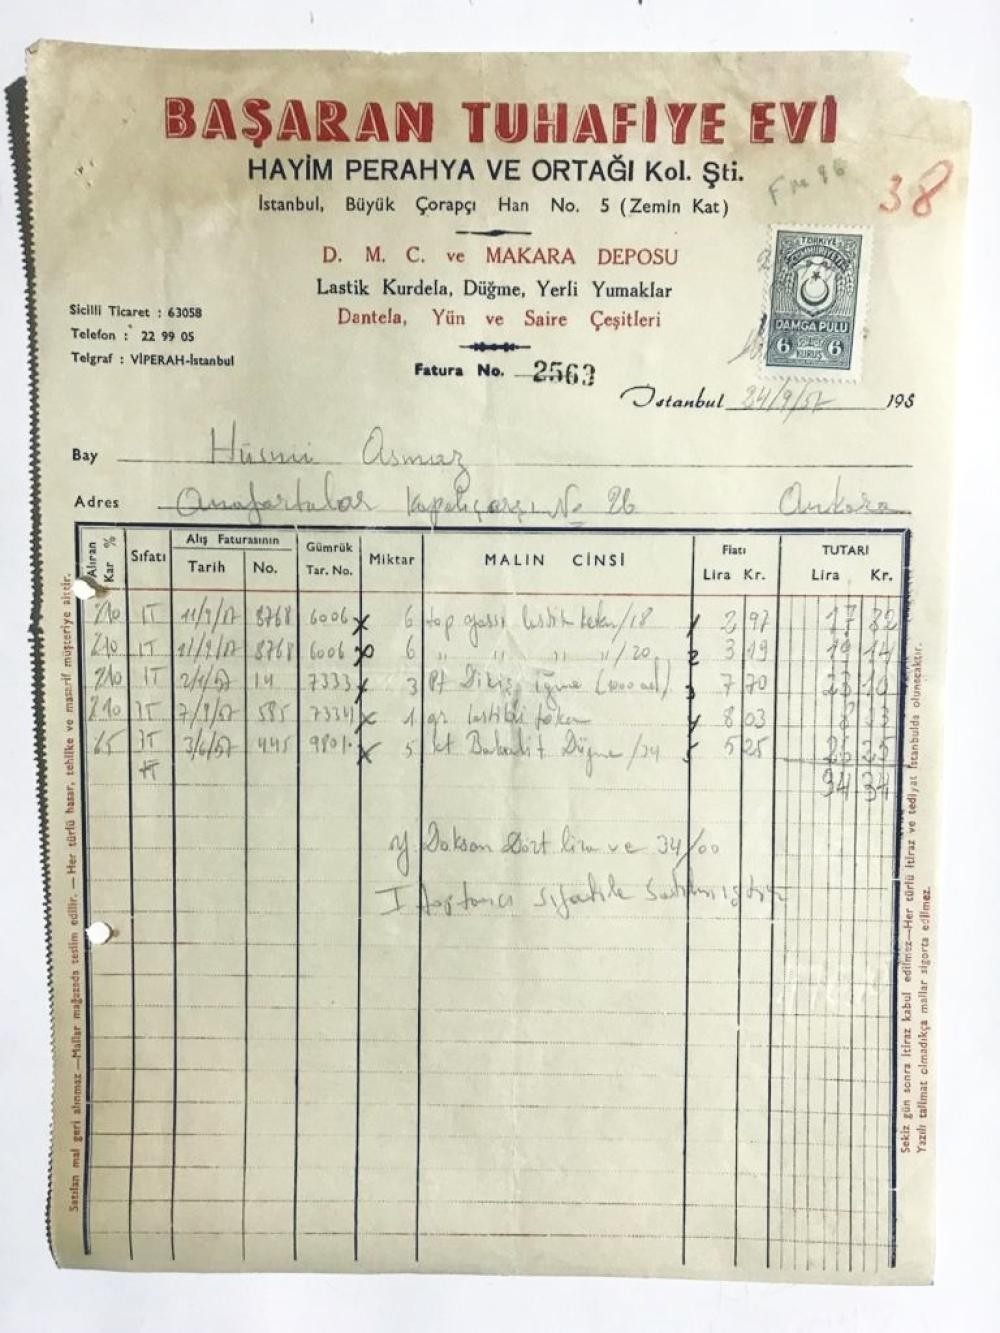 BAŞARAN TUHAFİYE EVİ
HAYİM PERAHYA VE ORTAĞI Kol. Şti.
İstanbul, Büyük Çorapçı Han No. 5 (Zemin Kat)
38
D. M. C. ve MAKARA DEPOSU
Lastik Kurdela, Düğme, Yerli Yumaklar
Dantela, Yün ve Saire Çeşitleri
TÜRKİYE
CUMHURİYETİ
DAMGA PULU
6 6
KURUŞ
Sicilli Ticaret : 63058
Telefon : 22 99 05
Telgraf : VİPERAH-İstanbul
Fatura No. 2563
İstanbul 24/9/57 195
Bay Hüsnü Asmaz
Adres Anafartalar Kapalıçarşı No 26 Ankara
Alıran Kar %
Sıfatı
Alış Faturasının
Tarih
No.
Gümrük Tar. No.
Miktar
MALIN CİNSİ
Fiatı
Lira Kr.
TUTARI
Lira Kr.
%10 IT 11/9/57 8768 6006 x 6 top lastik keten/18 1 2 97 17 82
%10 IT 11/9/57 8768 6006 x 6 " " " /20 2 3 19 19 14
%10 IT 14 7333 x 3 Pk Dikiş iğne 3 7 70 23 10
%10 IT 7/9/57 585 7334 x 1 gr lastikli 4 8 03 8 03
65 IT 3/6/57 445 9801 x 5 Düğme /24 5 5 25 26 25
IT
94 34
Y. Doksan Dört lira ve 34/00
I toptancı sıfatile satılmıştır
Satılan mal geri alınmaz —Mallar mağazada teslim edilir. — Her türlü hasar, tehlike ve masarif müşteriye aittir.
Sekiz gün sonra itiraz kabul edilmez—Her türlü itiraz ve tediyat İstanbulda olunacaktır.
Yazılı talimat olmadıkça mallar sigorta edilmez.